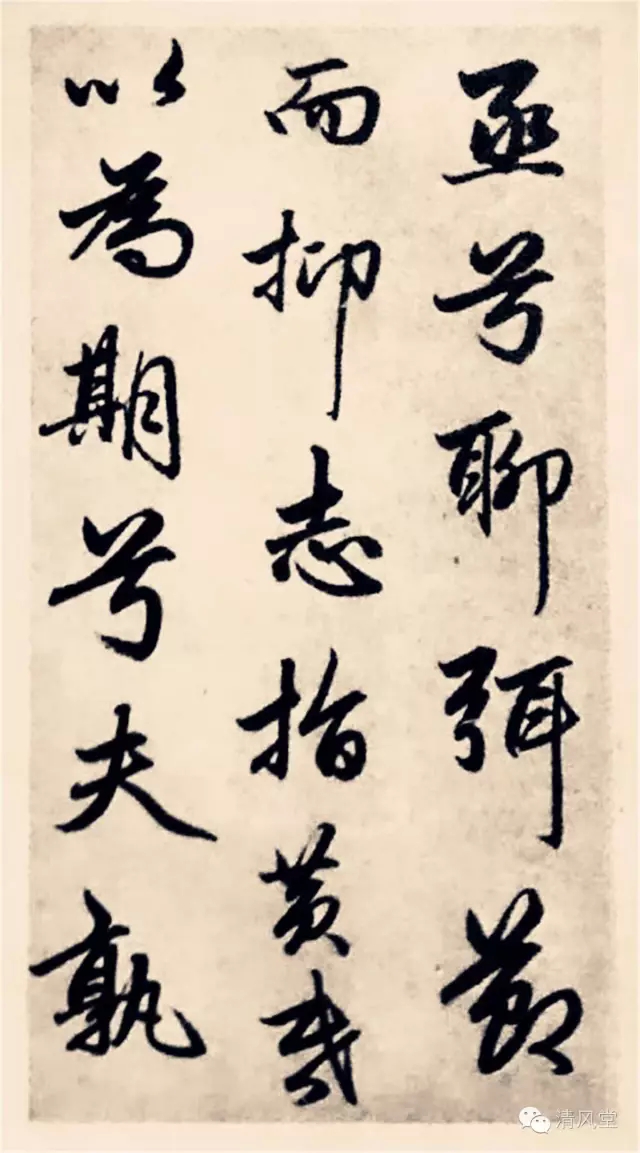 亟兮聊弭節
而抑志指黄
以為期兮夫孰
清风堂